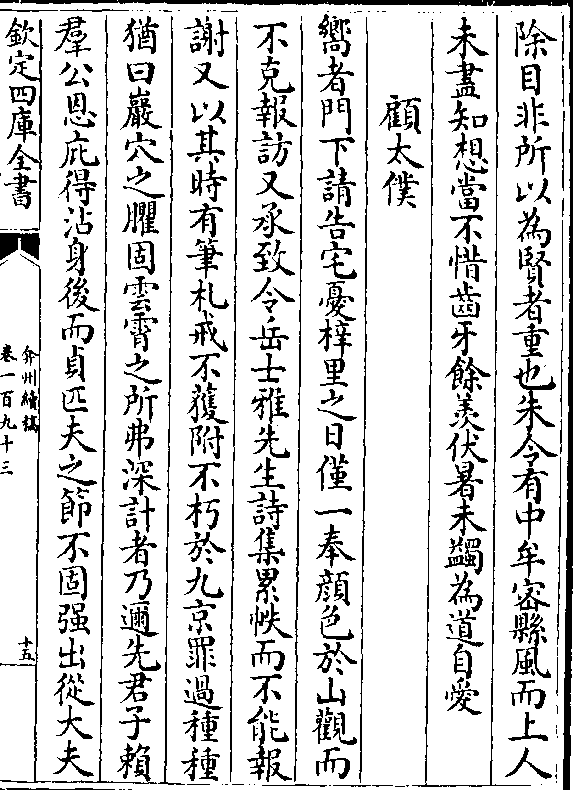 除目非所以為賢者重也朱令有中牟密縣風而上人
未盡知想當不惜齒牙餘羨伏暑未蠲為道自愛
顧太僕
嚮者門下請告宅憂梓里之日僅一奉顔色於山觀而
不克報訪又承致令岳士雅先生詩集累帙而不能報
謝又以其時有筆札戒不獲附不朽於九京罪過種種
猶曰巖穴之臞固雲霄之所弗深計者乃邇先君子賴
羣公恩庇得沾身後而貞匹夫之節不固强出從大夫
欽定四庫全書
弇州續稿
卷一百九十三
十五